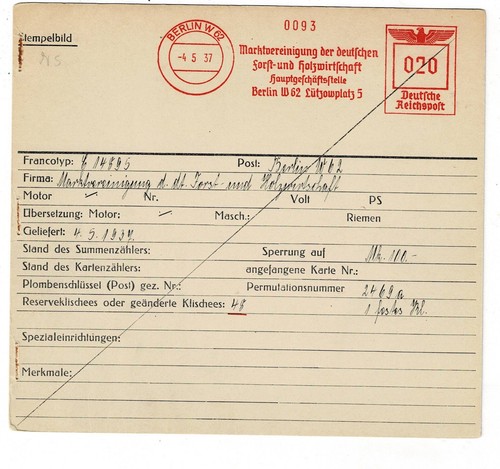 Stempelbild
BERLIN W 62
-4 5 37
0093
Marktvereinigung der deutschen
Forst- und Holzwirtschaft
Hauptgeschäftsstelle
Berlin W 62 Lützowplatz 5
020
Deutsche
Reichspost
Francotyp: C 14895 Post: Berlin W 62
Firma: Marktvereinigung d. dt. Forst- und Holzwirtschaft
Motor — Nr. Volt PS
Übersetzung: Motor; — Masch.: Riemen
Geliefert: 4. 5. 1937.
Stand des Summenzählers: Sperrung auf Mk. 100.-
Stand des Kartenzählers: angefangene Karte Nr.:
Plombenschlüssel (Post) gez. Nr.: Permutationsnummer 2469a
Reserveklischees oder geänderte Klischees: 48 1 festes Kl.
Spezialeinrichtungen:
Merkmale: